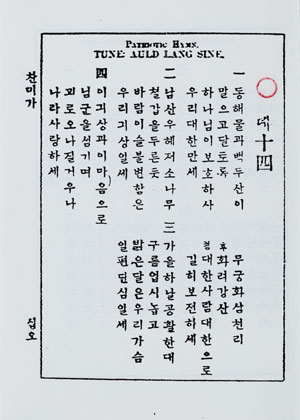 PATRIOTIC HYMN.
TUNE: AULD LANG SINE.
뎨十四
一 동해물과백두산이
말으고달토록
하나님이보호하사
우리대한만세
후 무궁화삼천리
화려강산
렴 대한사람대한으로
길히보전하세
二 남산우헤저소나무
철갑을두른듯
바람이슬불변함은
우리긔상일세
三 가을하날공활한대
구름업시놉고
밝은달은우리가슴
일편단심일세
四 이긔상과이마음으로
님군을섬기며
괴로오나질거우나
나라사랑하세
찬미가
십오